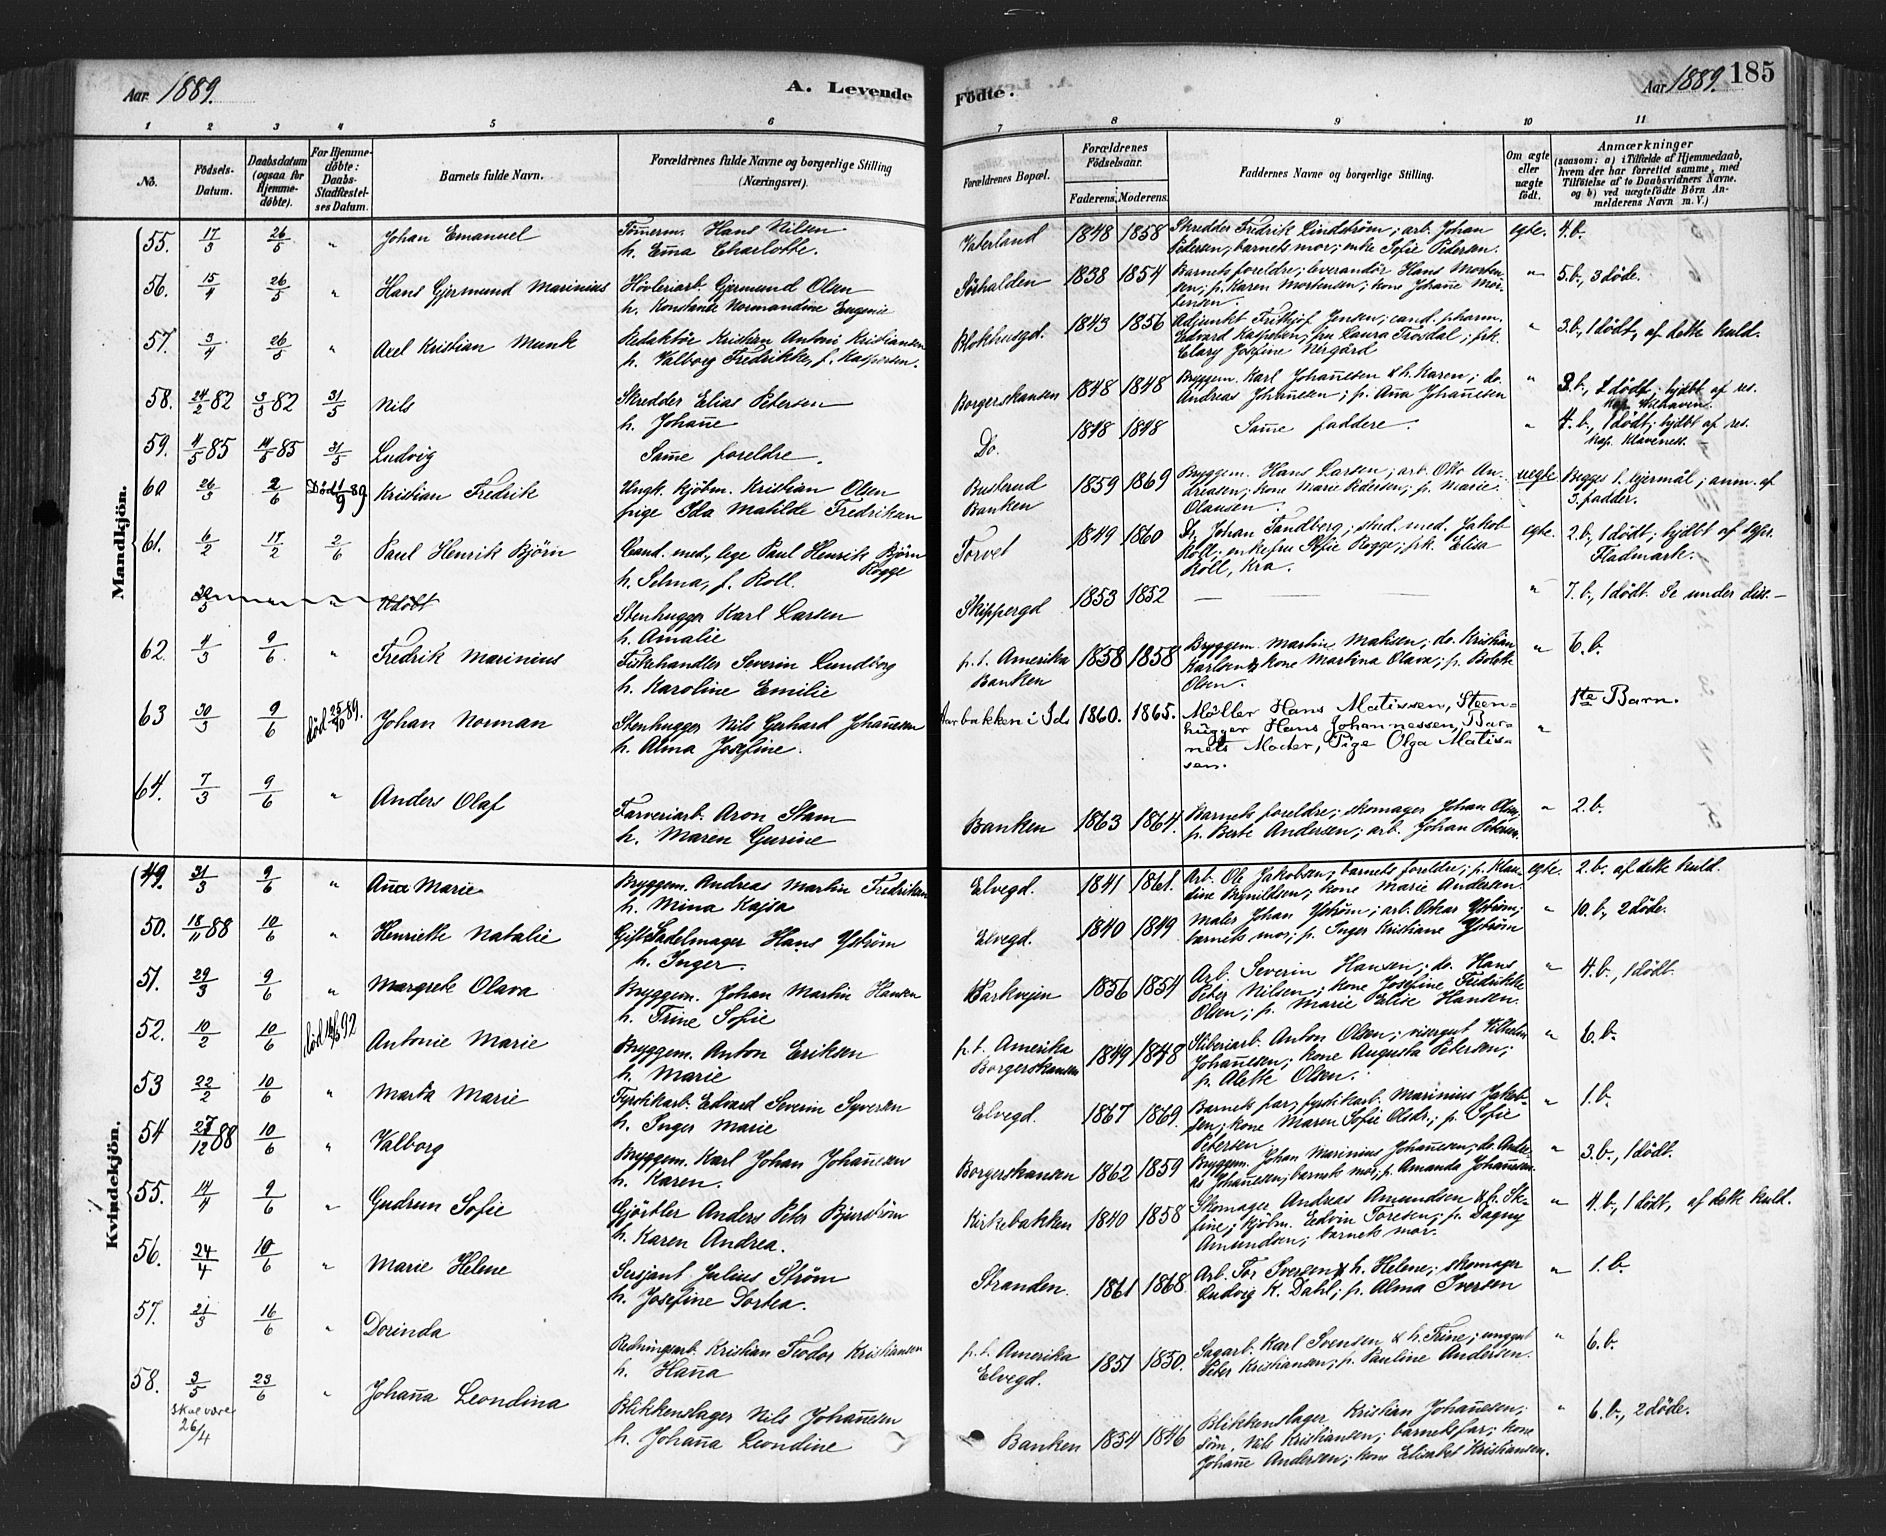 Aar 1889.
A. Levende
Födte.
Aar 1889.
185
1 2 3 4 5 6 7 8 9 10 11
No.
Födsels-Datum.
Daabsdatum (ogsaa for Hjemme-döbte).
For Hjemme-döbte: Daabs-Stadfæstelses Datum.
Barnets fulde Navn.
Forældrenes fulde Navne og borgerlige Stilling (Næringsvei).
Forældrenes Bopæl.
Forældrenes Födselsaar.
Faderens. Moderens.
Faddernes Navne og borgerlige Stilling.
Om ægte eller uægte födt.
Anmærkninger
(saasom: a) i Tilfælde af Hjemmedaab, hvem der har forrettet samme, med Tilföielse af to Daabsvidners Navne, og b) ved uægtefödte Börn Anmelderens Navn m. V.)
Mandkjön.
55. 17/3 26/5 " Johan Emanuel
Tömerm. Hans Nilsen
h. Emma Charlotte.
Vaterland 1848 1858
Skredder Fredrik Lindström; arb. Johan
Petersen, barnets mor; enke Sofie Petersen.
egte. 4.b.
56. 15/4 26/5 " Hans Gjermund Marinius
Hövleriarb. Germund Olsen
h. Konstanse Normandine Eugenie
Sörhalden 1838 1854
Barnets foreldre; leverandör Hans Morten-
sen; p. Karen Mortensen; kone Johanne Mor-
tensen.
" 5.b., 3 döde.
57. 3/4 26/5 " Axel Kristian Munk
Redaktör Kristian Antoni Kristiansen
h. Valborg Fredrikke, f. Kaspersen.
Blokhusgd. 1843 1856
Adjunkt Frithjof Jensen; cand. pharm.
Edvard Kaspersen; fru Laura Trosdal; frk.
Clary Josefine Nirgård
" 3.b., 1 dödt, af dette kuld.
58. 24/2 82 3/3 82 31/5 Nils
Skredder Elias Petersen
h. Johanne
Borgerskansen 1848 1848
Bryggem. Karl Johannesen & h. Karen; do.
Andreas Johannesen; p. Anna Johannesen
" 3.b., 1 dödt; hjdbt af res.
kap.
59. 4/5 85 14/5 85 31/5 Ludvig
Samme foreldre.
Do. 1848 1848
Samme faddere.
" 4.b., 1 dödt; hjdbt af res.
kap. Klavenes.
60 26/3 2/6 Död 1/9 89 Kristian Fredrik
Ungk. kjöbm. Kristian Olsen
pige Ida Matilde Fredriksen
Busterud
Banken 1859 1869
Bryggem. Hans Larsen; arb. Otto An-
dreasen; kone Marie Pedersen; p. Marie
Olausen.
uegte Begges 1. lejermål; anm. af
3. fadder.
61. 6/2 17/2 2/6 Paul Henrik Björn
Cand. med., lege Paul Henrik Björn
Rogge
h. Selma, f. Roll.
Torvet 1849 1860
Dr. Johan Tandberg; stud. med. Jakob
Roll; enkefru Sofie Rogge; frk. Elisa
Roll, Kra.
egte. 2.b., 1 dödt; hjdbt af spr.
Fladmark.
30/5 " " Udöbt
Stenhugger Karl Larsen
h. Amalie
Skippergd 1853 1852
— — — —
" 7.b., 1 dödt. Se under diss. —
62. 4/3 9/6 " Fredrik Marinius
Fiskehandler Severin Lundborg
h. Karoline Emilie
p.t. Amerika
Banken 1858 1858
Bryggem. Martin Matisen; do. Kristian
Karlsen & kone Martina Olava; p. Bolette
Olsen.
" 6.b.
63 30/3 9/6 död 25/10 89. Johan Norman
Stenhugger Nils Gerhard Johannesen
h. Alma Josefine.
Aarbakken i Ids 1860. 1865.
Møller Hans Matissen, Steen-
hugger Hans Johannessen, Bar-
nets Moder, Pige Olga Matis-
sen.
" 1ste Barn.
64. 7/3 9/6 " Anders Olaf
Farveriarb. Aron Stam
h. Maren Gurine
Banken 1863 1864.
Barnets foreldre; skomager Johan Olsen,
p. Berte Andersen; arb. Johan Petersen.
" 2.b.
Kvindekjön.
49. 31/3 9/6 " Anna Marie
Bryggem. Andreas Martin Fredriksen
h. Mina Kajsa
Elvegd. 1841 1861.
Arb. Ole Jakobsen, barnets foreldre; p. Klau-
dine Brynildsen; kone Marie Andersen.
egte. 2.b. af dette kuld.
50. 18/11 88 10/6 " Henriette Natalie
Gift Sadelmager Hans Yström
h. Inger.
Elvegd. 1840 1849
Maler Johan Yström; arb. Oskar Yström;
barnets mor; p. Inger Kristiane Yström
" 10.b., 2 döde.
51. 29/3 9/6 " Margrete Olava
Bryggem. Johan Martin Hansen
h. Trine Sofie
Parkvejen 1856 1854
Arb. Severin Hansen; do. Hans
Peter Nilsen; kone Josefine Fredrikke
Olsen; p. Marie Elise Hansen.
" 4.b., 1 dödt.
52. 10/2 10/6 Antonie Marie
Bryggem. Anton Eriksen
h. Marie
p.t. Amerika
Borgerskansen 1849 1848
Stiberiarb. Anton Olsen; visergut Vilhelm
Johannesen; kone Augusta Petersen;
p. Alette Olsen.
" 6.b.
53 22/2 10/6 " Marta Marie
Fyrstikkarb. Edvard Severin Syversen
h. Inger Marie
Elvegd. 1867 1869.
Barnets far; fyrstikarb. Marinius Jakob-
sen; kone Maren Sofie Olsdr; p. Sofie
Petersen.
" 1.b.
54 27/12 88 10/6 " Valborg
Bryggem. Karl Johan Johannesen
h. Karen.
Borgerskansen 1862 1859
Bryggem. Johan Marinius Johannesen; do. Andre-
as Johannesen; barnets mor; p. Amanda Johannesen.
" 3.b., 1 dödt.
55. 14/4 9/6 " Gudrun Sofie
Gjörtler Anders Peter Bjurström
h. Karen Andrea.
Kirkebakken 1840 1858
Skomager Andreas Amundsen & h. Se-
fine; kjöbm. Edvin Toresen; p. Dagny
Amundsen; barnets mor.
" 4.b., 1 dödt, af dette kuld.
56. 24/4 10/6 " Marie Helene
Sersjant Julius Ström
h. Josefine Dortea.
Stranden. 1861 1868.
Arb. Tor Iversen & h. Helene; skomager
Ludvig K. Dahl; p. Alma Iversen
" 1.b.
57. 21/3 16/6 " Dorinda
Redningsarb. Kristian Teodor Kristiansen
h. Hanna
p.t. Amerika
Elvegd. 1851 1850.
Sagarb. Karl Svensen & h. Trine; unggut
Peter Kristiansen; p. Pauline Andersen.
" 6.b.
58. 3/5 23/6 " Johanna Leondina
skal være
26/4
Blikkenslager Nils Johannesen
h. Johanna Leondine
Banken 1854 1846
Blikkenslager Kristian Johannesen;
söm. Nils Kristiansen; barnets far; kone
Johanne Andersen; kone Elisabet Kristiansen.
" 6.b., 2 döde.